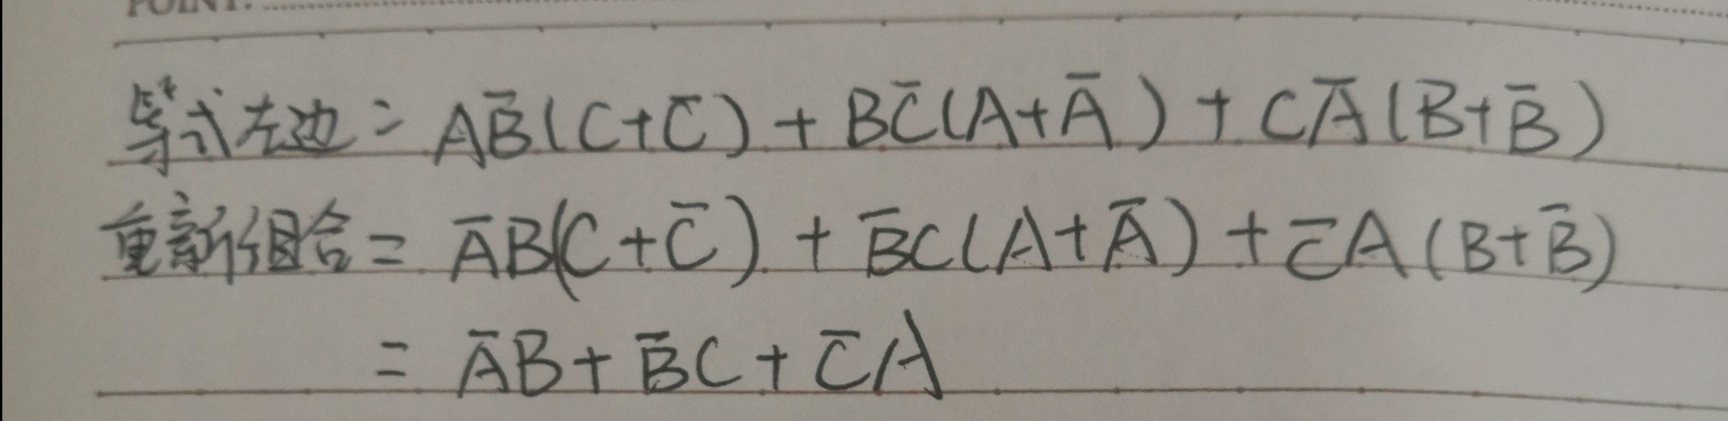 POINT:
等式左边 = AB̄(C+C̄) + BC̄(A+Ā) + CĀ(B+B̄)
重新组合 = ĀB(C+C̄) + B̄C(A+Ā) + C̄A(B+B̄)
= ĀB + B̄C + C̄A